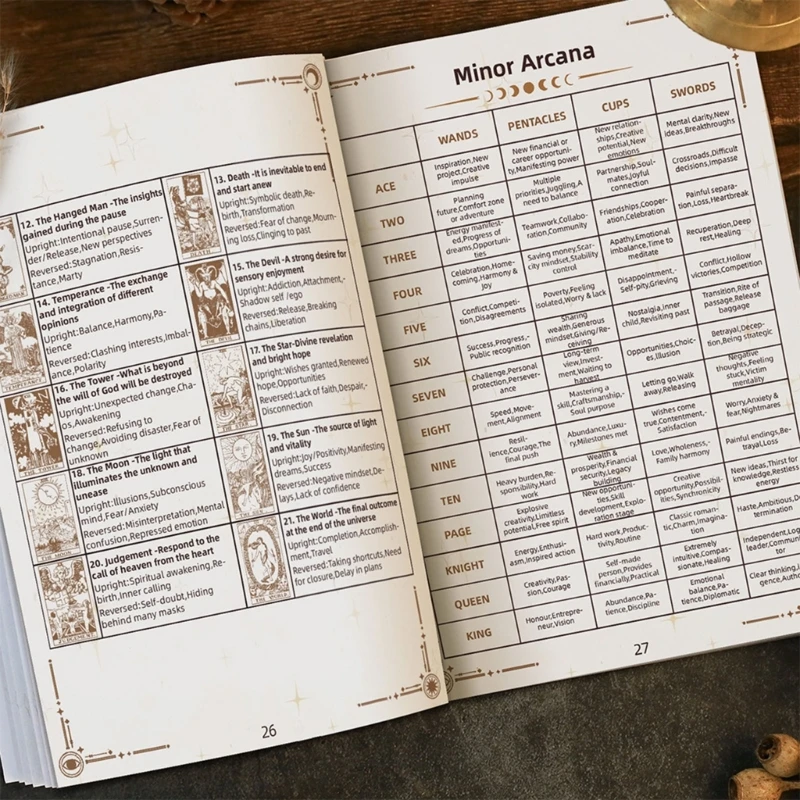 12. The Hanged Man -The insights
gained during the pause
Upright:Intentional pause,Surren-
der/Release,New perspectives
Reversed:Stagnation,Resis-
tance,Marty
13. Death -It is inevitable to end
and start anew
Upright:Symbolic death,Re-
birth,Transformation
Reversed:Fear of change,Mourn-
ing loss,Clinging to past
DEATH
14. Temperance -The exchange
and integration of different
opinions
Upright:Balance,Harmony,Pa-
tience
Reversed:Clashing interests,Imbal-
ance,Polarity
TEMPERANCE
15. The Devil -A strong desire for
sensory enjoyment
Upright:Addiction,Attachment,-
Shadow self /ego
Reversed:Release,Breaking
chains,Liberation
THE DEVIL
16. The Tower -What is beyond
the will of God will be destroyed
Upright:Unexpected change,Cha-
os,Awakening
Reversed:Refusing to
change,Avoiding disaster,Fear of
unknown
THE TOWER
17. The Star-Divine revelation
and bright hope
Upright:Wishes granted,Renewed
hope,Opportunities
Reversed:Lack of faith,Despair,-
Disconnection
THE STAR
18. The Moon -The light that
illuminates the unknown and
unease
Upright:Illusions,Subconscious
mind,Fear/Anxiety
Reversed:Misinterpretation,Mental
confusion,Repressed emotion
THE MOON
19. The Sun -The source of light
and vitality
Upright:Joy/Positivity,Manifesting
dreams,Success
Reversed:Negative mindset,De-
lays,Lack of confidence
THE SUN
20. Judgement -Respond to the
call of heaven from the heart
Upright:Spiritual awakening,Re-
birth,Inner calling
Reversed:Self-doubt,Hiding
behind many masks
JUDGEMENT
21. The World -The final outcome
at the end of the universe
Upright:Completion,Accomplish-
ment,Travel
Reversed:Taking shortcuts,Need
for closure,Delay in plans
THE WORLD
26
Minor Arcana
WANDS
PENTACLES
CUPS
SWORDS
ACE
Inspiration,New
project,Creative
impulse
New financial or
career opportuni-
ty,Manifesting power
New relation-
ships,Creative
potential,New
emotions
Mental clarity,New
ideas,Breakthroughs
TWO
Planning
future,Comfort zone
or adventure
Multiple
priorities,Juggling,A
need to balance
Partnership,Soul-
mates,Joyful
connection
Crossroads,Difficult
decisions,Impasse
THREE
Energy manifest-
ed,Progress of
dreams,Opportuni-
ties
Teamwork,Collabo-
ration,Community
Friendships,Cooper-
ation,Celebration
Painful separa-
tion,Loss,Heartbreak
FOUR
Celebration,Home-
coming,Harmony &
Joy
Saving money,Scar-
city mindset,Stability
control
Apathy,Emotional
imbalance,Time to
meditate
Recuperation,Deep
rest,Healing
FIVE
Conflict,Competi-
tion,Disagreements
Poverty,Feeling
isolated,Worry & lack
Disappointment,-
Self-pity,Grieving
Conflict,Hollow
victories,Competition
SIX
Success,Progress,-
Public recognition
Sharing
wealth,Generous
mindset,Giving/Re-
ceiving
Nostalgia,Inner
child,Revisiting past
Transition,Rite of
passage,Release
baggage
SEVEN
Challenge,Personal
protection,Persever-
ance
Long-term
view,Invest-
ment,Waiting to
harvest
Opportunities,Choic-
es,Illusion
Betrayal,Decep-
tion,Being strategic
EIGHT
Speed,Move-
ment,Alignment
Mastering a
skill,Craftsmanship,-
Soul purpose
Letting go,Walk
away,Releasing
Negative
thoughts,Feeling
stuck,Victim
mentality
NINE
Resil-
ience,Courage,The
final push
Abundance,Luxu-
ry,Milestones met
Wishes come
true,Contentment,-
Satisfaction
Worry,Anxiety &
fear,Nightmares
TEN
Heavy burden,Re-
sponsibility,Hard
work
Wealth &
prosperity,Financial
security,Legacy
building
Love,Wholeness,-
Family harmony
Painful endings,Be-
trayal,Loss
PAGE
Explosive
creativity,Limitless
potential,Free spirit
New opportuni-
ties,Skill
development,Explo-
ration stage
Creative
opportunity,Possibil-
ities,Synchronicity
New ideas,Thirst for
knowledge,Restless
energy
KNIGHT
Energy,Enthusi-
asm,Inspired action
Hard work,Produc-
tivity,Routine
Classic roman-
tic,Charm,Imagina-
tion
Haste,Ambitious,D
termination
QUEEN
Creativity,Pas-
sion,Courage
Self-made
person,Provides
financially,Practical
Extremely
intuitive,Compas-
sionate,Healing
Independent,Log
leader,Commun
tor
KING
Honour,Entrepre-
neur,Vision
Abundance,Pa-
tience,Discipline
Emotional
balance,Pa-
tience,Diplomatic
Clear thinking,I
gence,Autho
27